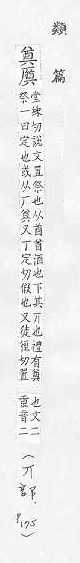 類篇
奠𢍜
堂練切說文置祭也从酋酋酒也下其丌也禮有奠
祭一曰定也或从厂奠又丁定切假也又徒徑切置
也文二
重音二
(丌部.
P175)